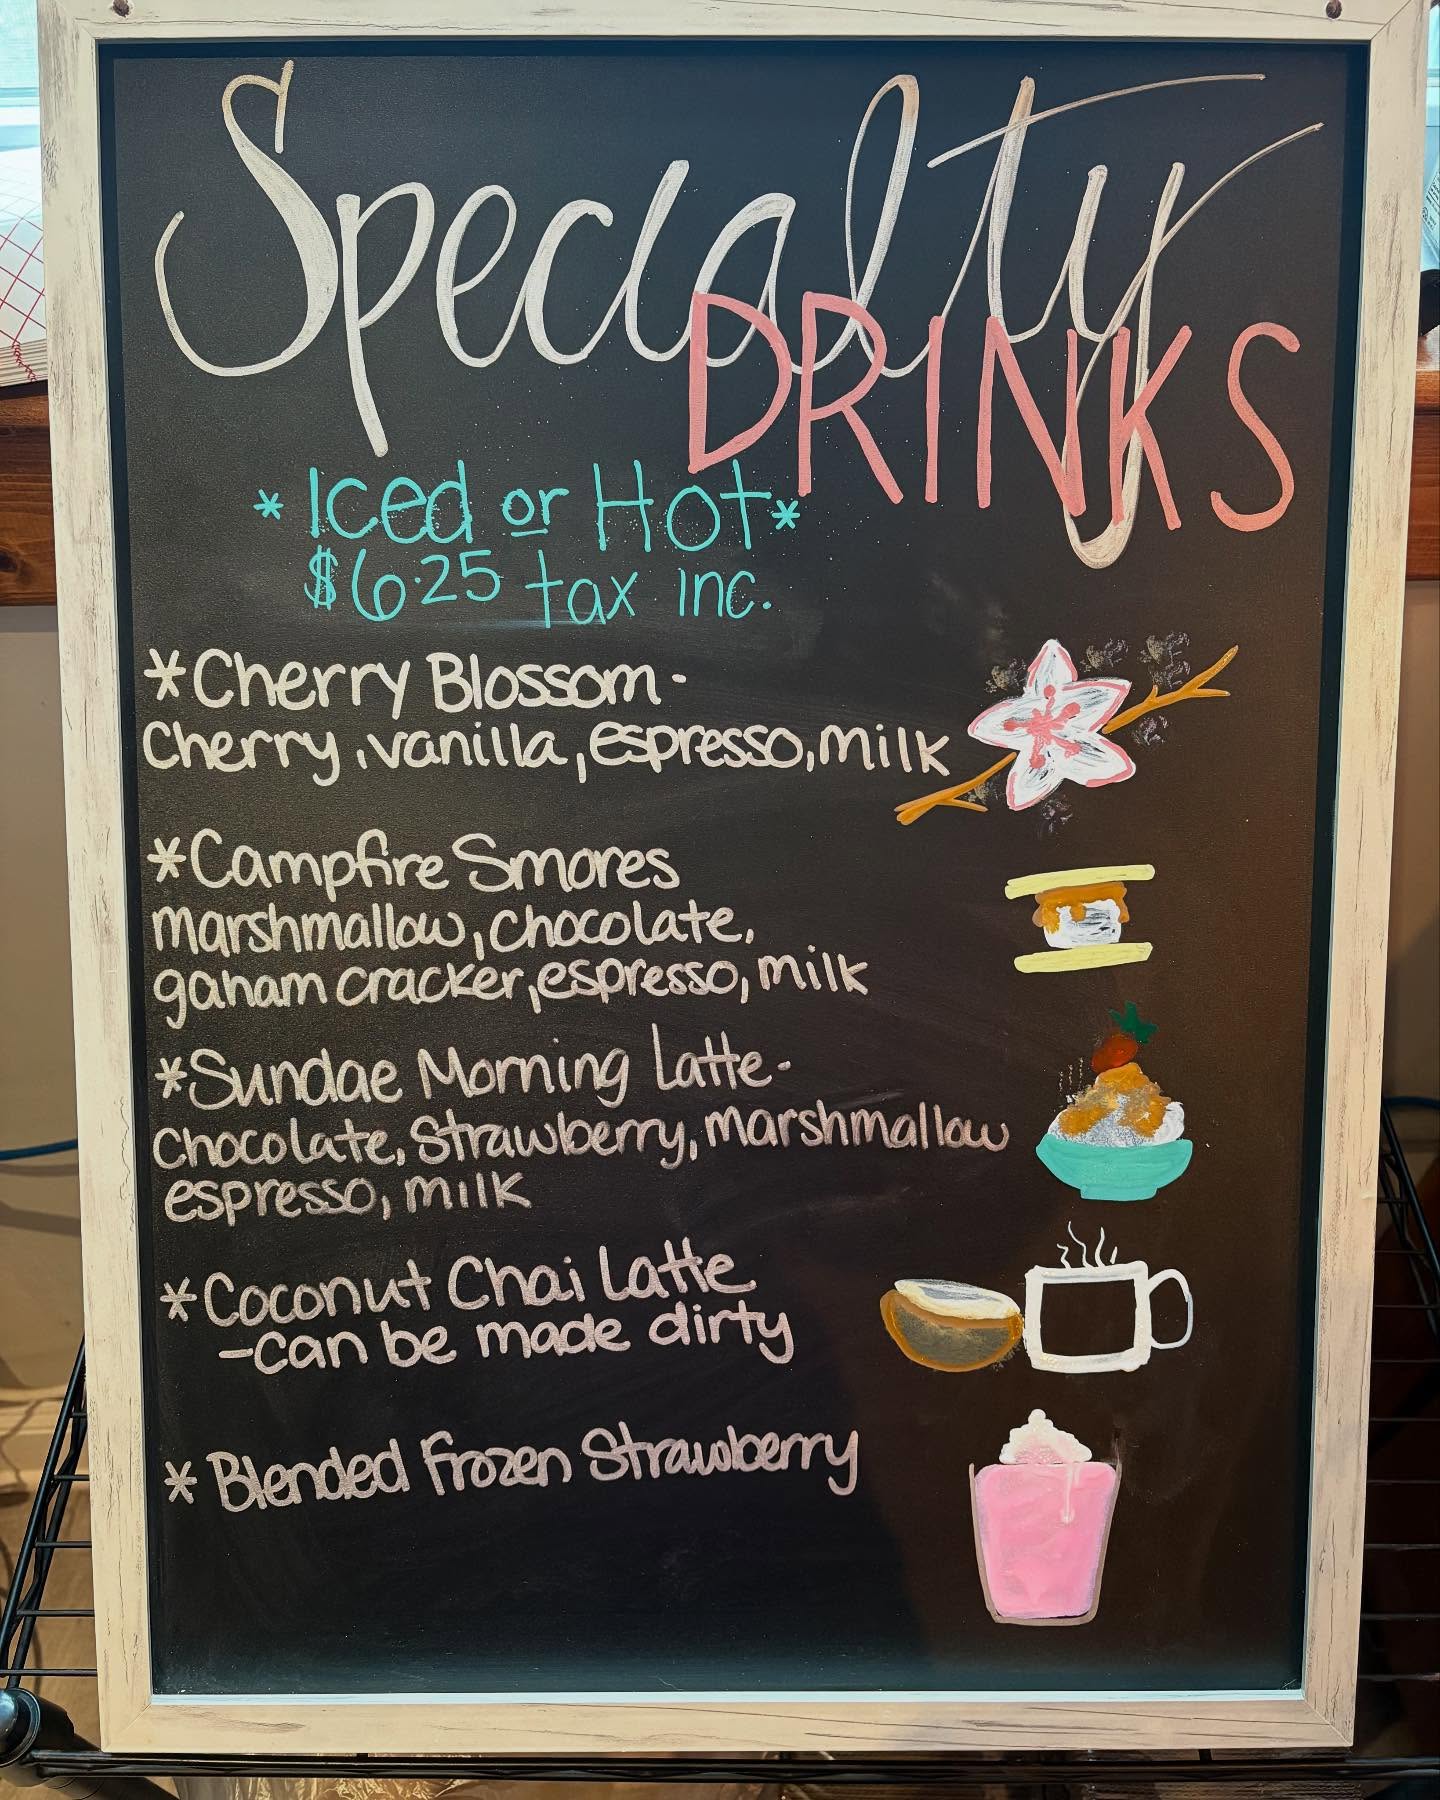 Specialty
DRINKS
*Iced or Hot*
$6.25 tax inc.
*Cherry Blossom-
Cherry, vanilla, espresso, milk
*Campfire Smores
marshmallow, chocolate,
gaham cracker, espresso, milk
*Sundae Morning Latte-
Chocolate, Strawberry, marshmallow
espresso, milk
*Coconut Chai Latte
-can be made dirty
* Blended Frozen Strawberry